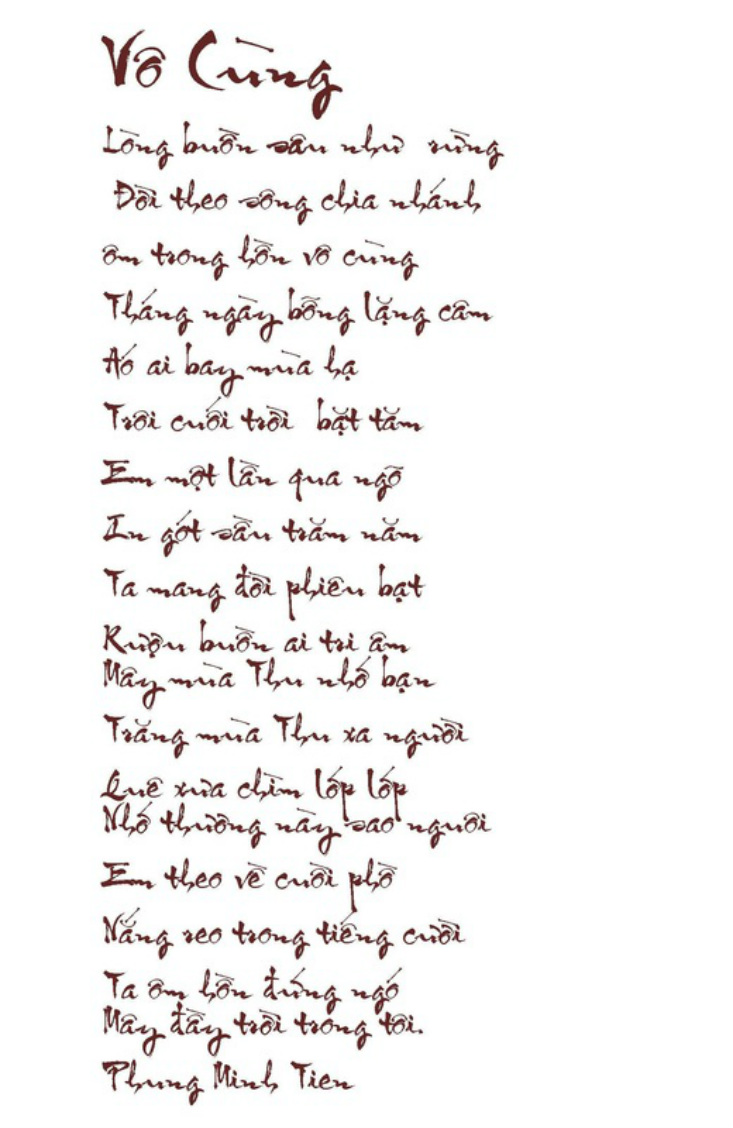 Vô Cùng
Lòng buồn sâu như rừng
Đồi theo sông chia nhánh
ôm trong hồn vô cùng
Tháng ngày bỗng lặng câm
Áo ai bay mùa hạ
Trôi cuối trời bặt tăm
Em một lần qua ngõ
In gót sầu trăm năm
Ta mang đời phiêu bạt
Rượu buồn ai tri âm
Mây mùa Thu nhớ bạn
Trăng mùa Thu xa người
Quê xưa chìm lớp lớp
Nhớ thương này sao nguôi
Em theo về cuối phố
Nắng reo trong tiếng cười
Ta ôm hồn đứng ngó
Mây đầy trời trong tôi.
Phung Minh Tien